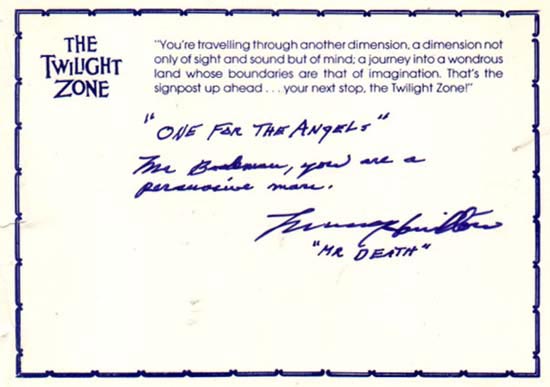 THE
TWILIGHT
ZONE
"You're travelling through another dimension, a dimension not
only of sight and sound but of mind; a journey into a wondrous
land whose boundaries are that of imagination. That's the
signpost up ahead . . . your next stop, the Twilight Zone!"
"ONE FOR THE ANGELS"
Mr Bookman, you are a
persuasive man.
"MR DEATH"